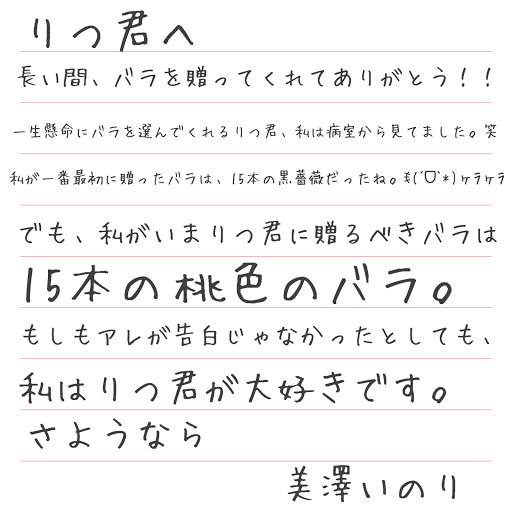 りつ君へ
長い間、バラを贈ってくれてありがとう！！
一生懸命にバラを選んでくれるりつ君、私は病室から見てました。笑
私が一番最初に贈ったバラは、15本の黒薔薇だったね。ﾐ(´□`*)ケラケラ
でも、私がいまりつ君に贈るべきバラは
15本の桃色のバラ。
もしもアレが告白じゃなかったとしても、
私はりつ君が大好きです。
さようなら
美澤いのり